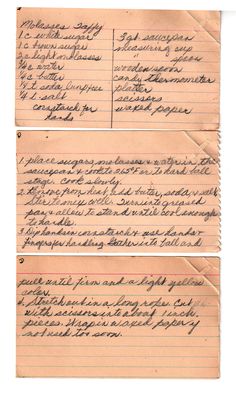 Molasses Taffy
1 c white sugar
1 c brown sugar
2 c light molasses
3/4 c water
1/4 c butter
1/8 t soda lump free
1/4 t. salt
cornstarch for
hands
3 qt saucepan
measuring cup
spoon
wooden spoon
candy thermometer
platter
scissors
waxed paper
1. place sugars, molasses & water in the
saucepan & cook to 265° F or to hard ball
stage. Cook slowly.
2. Remove from heat, add butter, soda & salt
Stir to mix well. Turn into greased
pan & allow to stand until cool enough
to handle.
3. Dip hands in cornstarch & use hands &
fingers for handling. Gather into ball and
pull until firm and a light yellow
color.
4. Stretch out in a long rope. Cut
with scissors into about 1 inch
pieces. Wrap in waxed paper if
not used too soon.